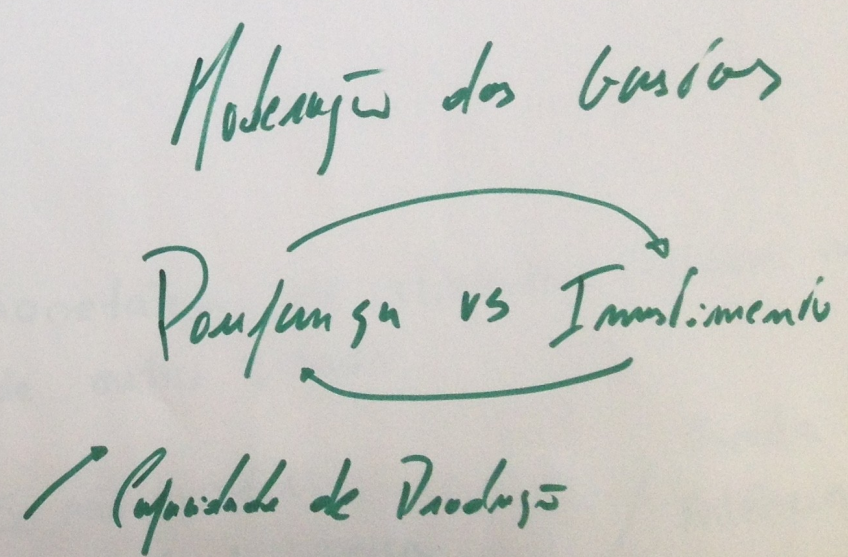 Moderação dos Gastos
Poupança vs Investimento
↗ Capacidade de Produção